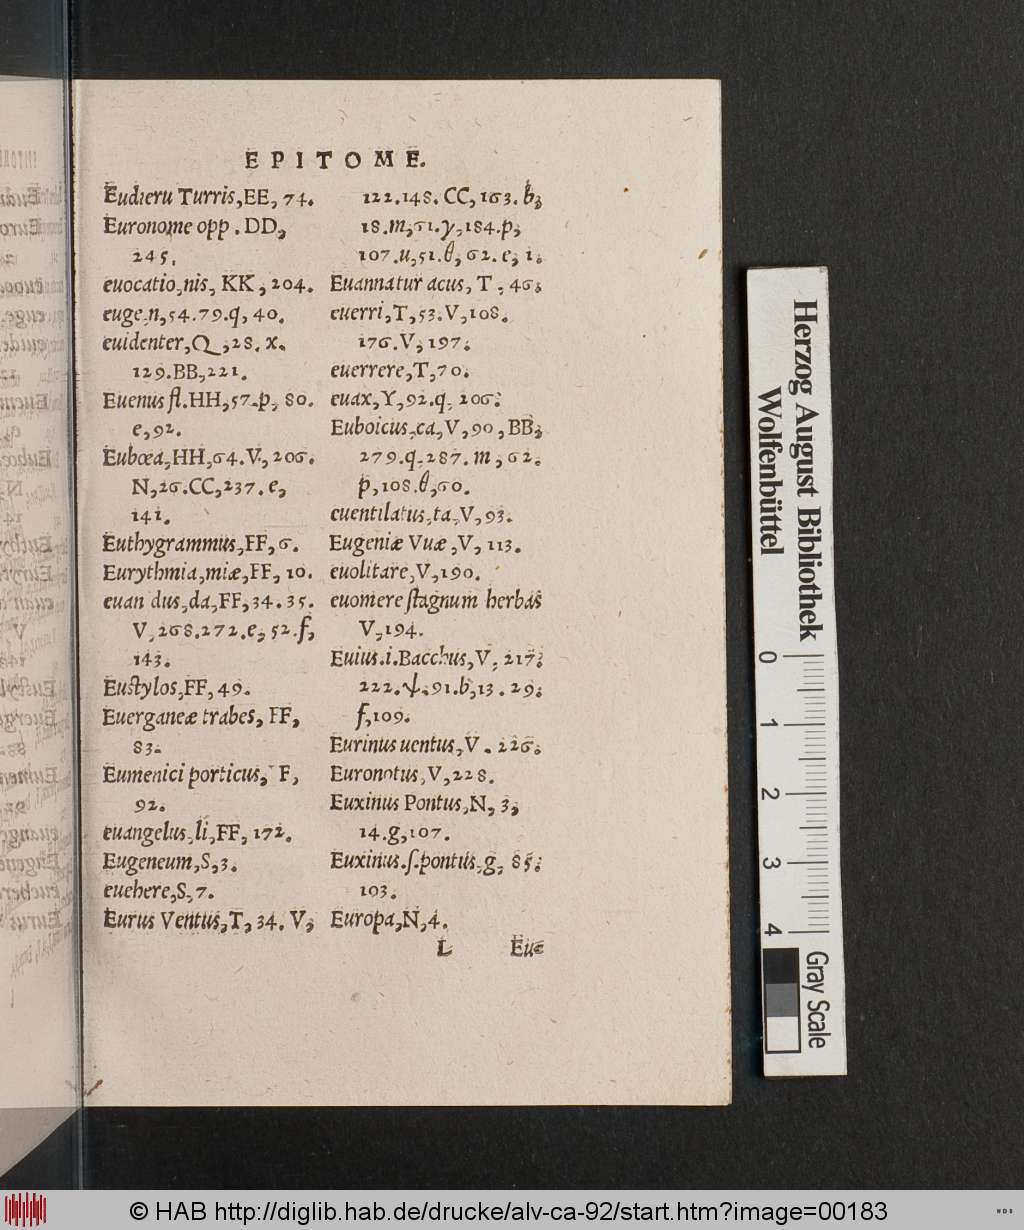 EPITOME.
Eudieru Turris, EE, 74.
Euronome opp. DD,
245.
euocatio, nis, KK, 204.
euge, n, 54. 79. q, 40.
euidenter, Q, 28. x.
129. BB, 221.
Euenus fl. HH, 57. p, 80.
e, 92.
Eubœa, HH, 64. V, 206.
N, 26. CC, 237. e,
141.
Euthygrammus, FF, 6.
Eurythmia, miæ, FF, 10.
euan dus, da, FF, 34. 35.
V, 268. 272. e, 52. f,
143.
Eustylos, FF, 49.
Euerganeæ trabes, FF,
83.
Eumenici porticus, F,
92.
euangelus, li, FF, 172.
Eugeneum, S, 3.
euehere, S, 7.
Eurus Ventus, T, 34. V,
122. 148. CC, 163. b,
18. m, 61. y, 184. p,
107. u, 51. θ, 62. e, 1.
Euannatur acus, T, 46,
euerri, T, 53. V, 108.
176. V, 197.
euerrere, T, 70.
euax, Y, 92. q, 206.
Euboicus, ca, V, 90, BB,
279. q, 287. m, 62.
p, 108. θ, 60.
euentilatus, ta, V, 93.
Eugeniæ Vuæ, V, 113.
euolitare, V, 190.
euomere stagnum herbas
V, 194.
Euius. i. Bacchus, V, 217.
222. ψ. 91. b, 13. 29.
f, 109.
Eurinus uentus, V. 226.
Euronotus, V, 228.
Euxinus Pontus, N, 3,
14. g, 107.
Euxinus. s. pontus, g, 85.
103.
Europa, N, 4.
L Eue
Herzog August Bibliothek
Wolfenbüttel
0 1 2 3 4
Gray Scale
© HAB http://diglib.hab.de/drucke/alv-ca-92/start.htm?image=00183